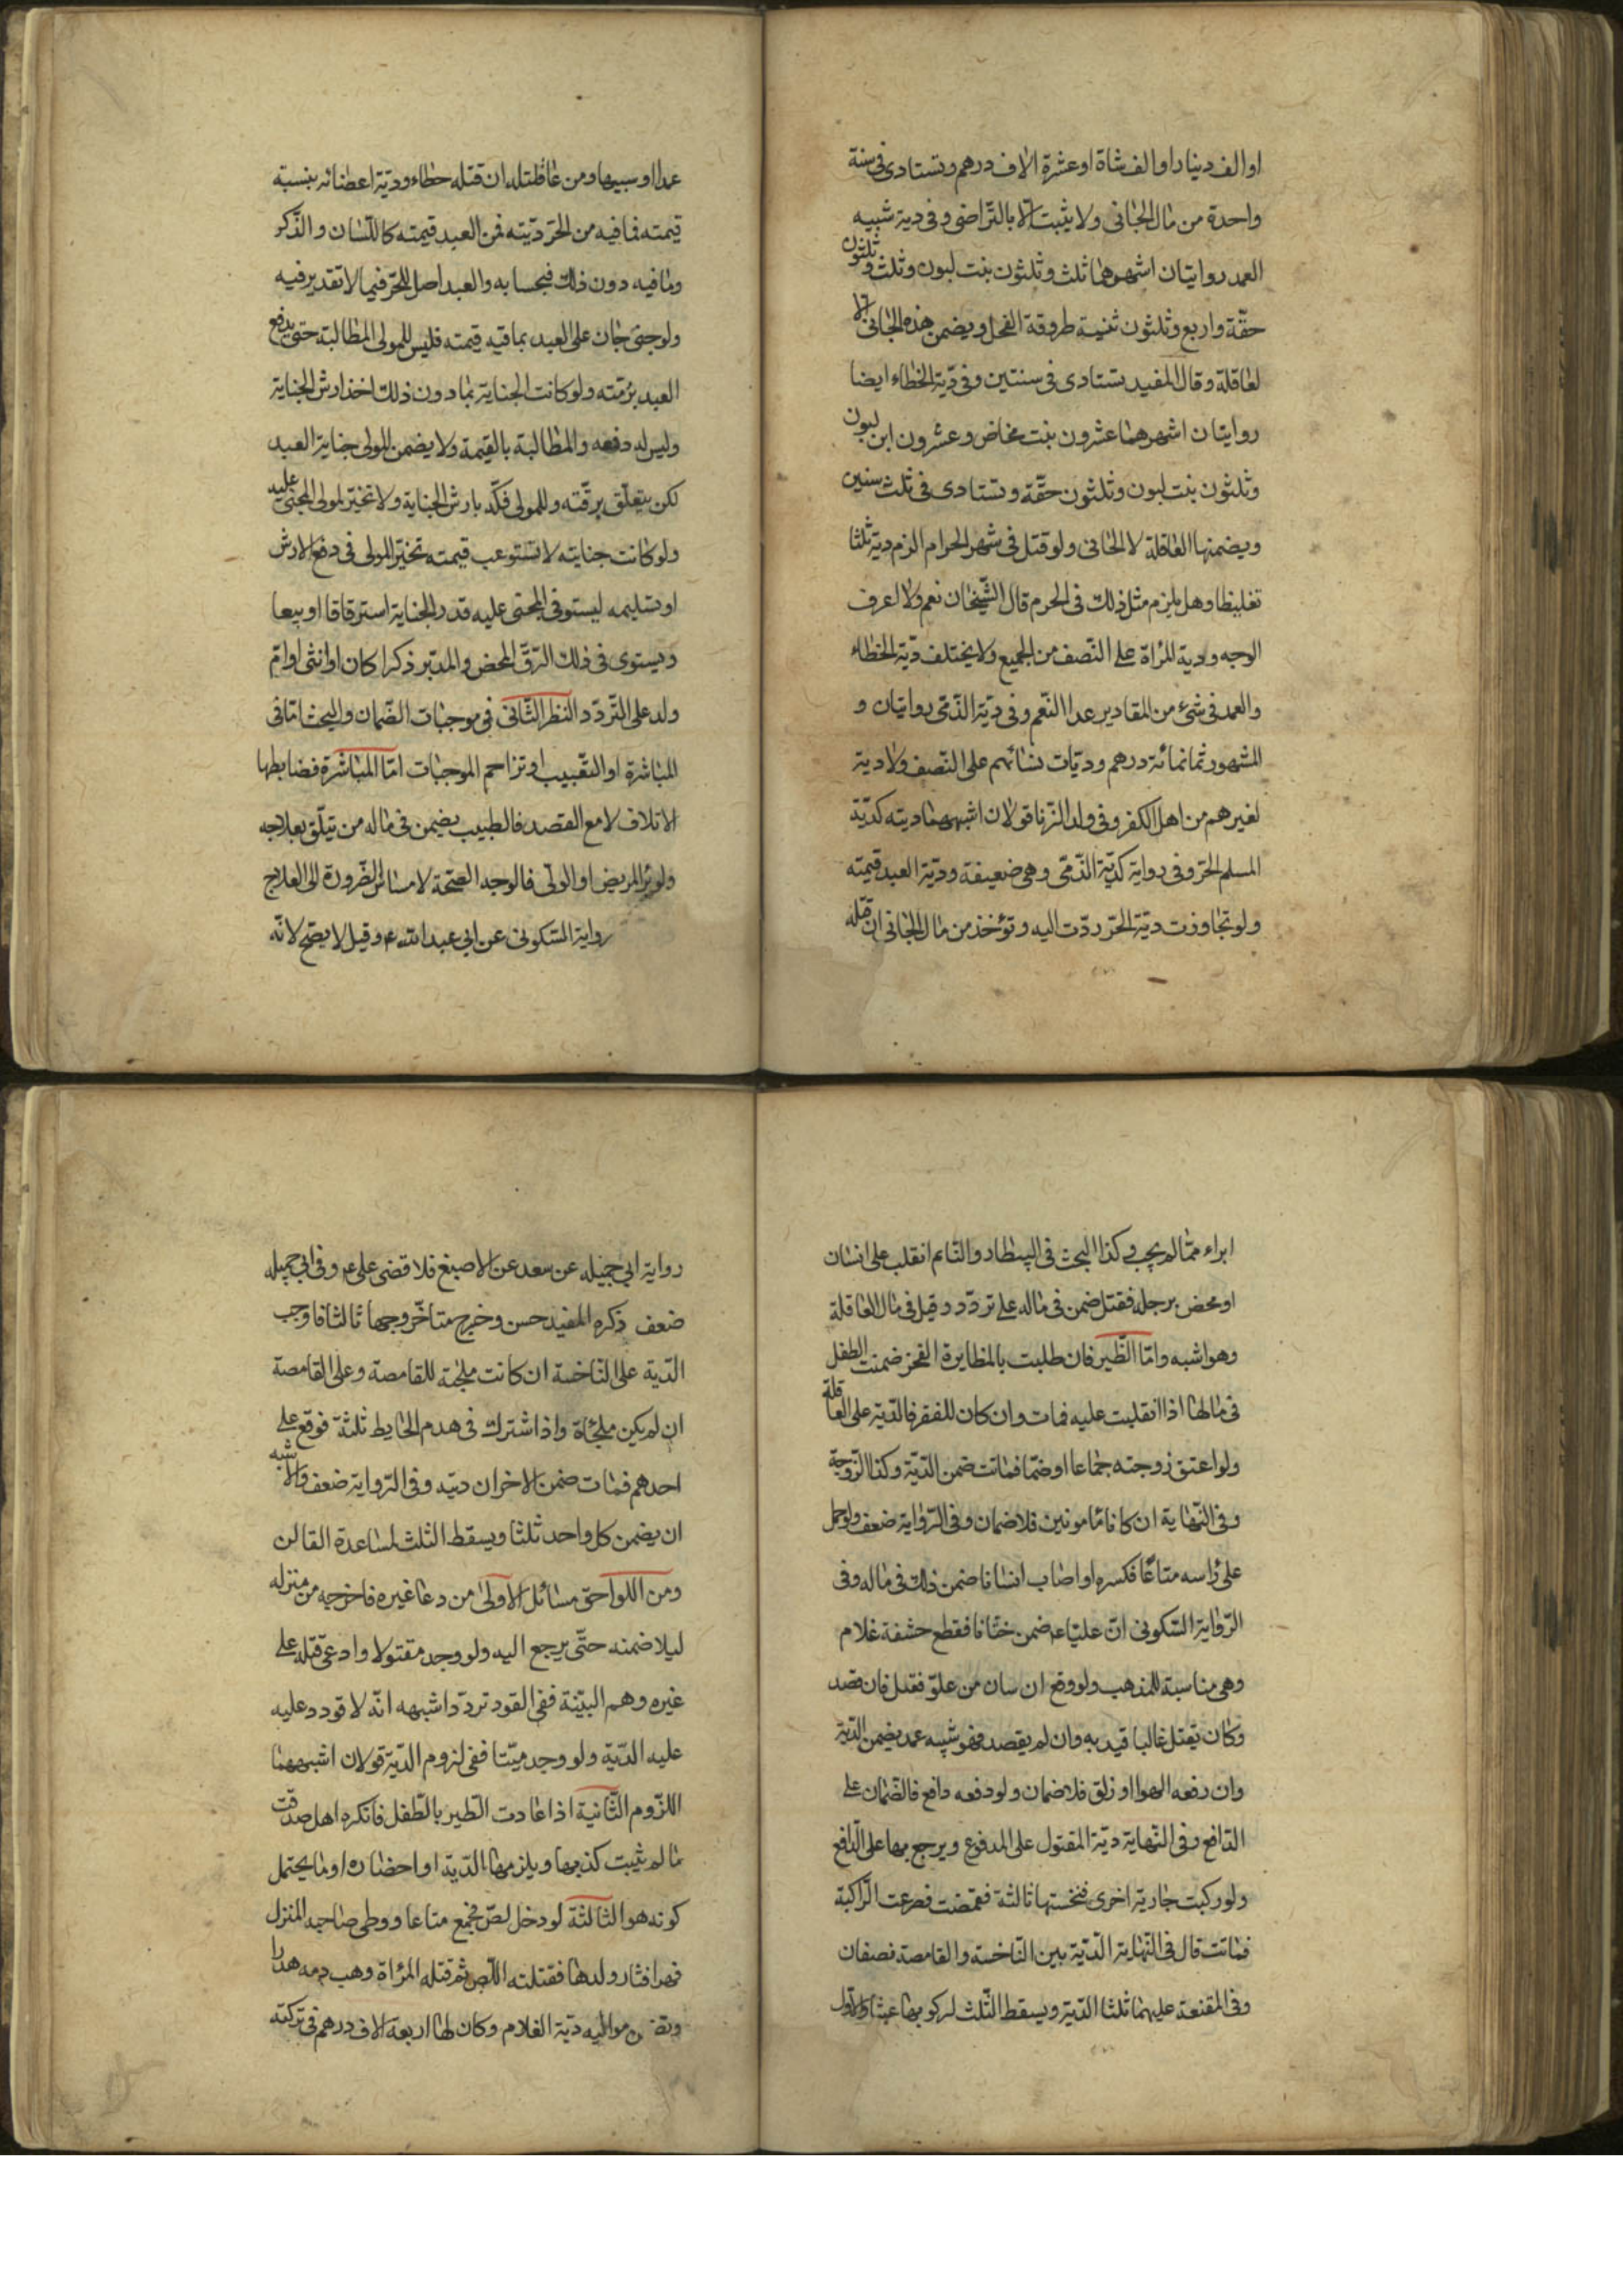 او الف دينار او الف شاة او عشرة الاف درهم وتستادى فى سنة
واحدة من مال الجانى ولا يثبت الا بالتراضى وفى دية شبيه
العمد روايتان اشهرهما ثلث وثلثون بنت لبون وثلث وثلثون
حقة واربع وثلثون ثنية طروقة الفحل ويضمن هذه الجانى لا
لعاقلة وقال المفيد تستادى فى سنتين وفى دية الخطاء ايضا
روايتان اشهرهما عشرون بنت مخاض وعشرون ابن لبون
وثلثون بنت لبون وثلثون حقة وتستادى فى ثلث سنين
ويضمنها العاقلة لا الجانى ولو قتل فى شهر الحرام الزم دية ثلثا
تغليظا وهل يلزم مثل ذلك فى الحرم قال الشيخان نعم ولا اعرف
الوجه ودية المرأة على النصف من الجميع ولا يختلف دية الخطاء
والعمد فى شئ من المقادير عدا النعم وفى دية الذمى روايتان و
المشهور ثمانمائة درهم وديات نسائهم على النصف ولا دية
لغيرهم من اهل الكفر وفى ولد الزنا قولان اشبههما ديته كدية
المسلم الحر وفى رواية كدية الذمى وهى ضعيفة ودية العبد قيمته
ولو تجاوزت دية الحر ردت اليه وتؤخذ من مال الجانى ان قتله
عمدا او سبيها ومن عاقلته ان قتله خطاء ودية اعضائه بنسبة
قيمته فما فيه من الحر ديته فمن العبد قيمته كاللسان والذكر
وما فيه دون ذلك فبحسابه والعبد اصل للحر فيما لا تقدير فيه
ولو جنى جان على العبد بما فيه قيمته فليس للمولى المطالبة حتى يدفع
العبد برمته ولو كانت الجناية بما دون ذلك اخذ ارش الجناية
وليس له دفعه والمطالبة بالقيمة ولا يضمن المولى جناية العبد
لكن يتعلق برقته وللمولى فكه بارش الجناية ولا تخير لمولى المجنى عليه
ولو كانت جنايته لا تستوعب قيمته تخير المولى فى دفع الارش
او تسليمه ليستوفى المجنى عليه قدر الجناية استرقاقا او بيعا
ويستوى فى ذلك الرق المحض والمدبر ذكرا كان او انثى او ام
ولد على التردد النظر الثانى فى موجبات الضمان والبحث اما فى
المباشرة او التسبيب او تزاحم الموجبات اما المباشرة فضابطها
الاتلاف لا مع القصد فالطبيب يضمن فى ماله من يتلف بعلاجه
ولو ابرأ المريض او الولى فالوجه الصحة لامساس الضرورة الى العلاج
رواية السكونى عن ابى عبد الله ع وقيل لا يصح لانه
ابراء مما لم يجب وكذا البحث فى البيطار والنائم انقلب على انسان
او محض برجله فقتل ضمن فى ماله على تردد وقيل فى مال العاقلة
وهو اشبه واما الظير فان طلبت بالمظايرة الفخر ضمنت الطفل
فى مالها اذا انقلبت عليه فمات وان كان للفقر فالدية على العاقلة
ولو اعتق زوجته جماعا او ضما فماتت ضمن الدية وكذا الزوجة
وفى النهاية ان كانا مامونين فلا ضمان وفى الرواية ضعف ولو حمل
على رأسه متاعا فكسره او اصاب انسانا ضمن ذلك فى ماله وفى
الرواية السكونى ان عليا ع ضمن ختانا فقطع حشفة غلام
وهى مناسبة للمذهب ولو وقع انسان من علو فقتل فان قصد
وكان يقتل غالبا قيد به وان لم يقصد فهو شبيه عمد يضمن الدية
وان رفعه الهوا او زلق فلا ضمان ولو دفعه دافع فالضمان على
الدافع وفى النهاية دية المقتول على المدفوع ويرجع بها على الدافع
ولو ركبت جارية اخرى فنخستها ثالثة فقمصت فصرعت الراكبة
فماتت قال فى النهاية الدية بين الناخسة والقامصة نصفان
وفى المقنعة عليهما ثلثا الدية ويسقط الثلث لركوبها عبثا والاول
رواية ابى جميله عن سعد عن الاصبغ فلا قضى على ع وفى ابى جميله
ضعف ذكره المفيد حسن وخرج متاخر وجها ثالثا فاوجب
الدية على الناخسة ان كانت ملجئة للقامصة وعلى القامصة
ان لم يكن ملجأة واذا اشترك فى هدم الحايط ثلثة فوقع على
احدهم فمات ضمن الاخران ديته وفى الرواية ضعف والاشبه
ان يضمن كل واحد ثلثا ويسقط الثلث لمساعدة التالف
ومن اللواحق مسائل الاولى من دعا غيره فاخرجه من منزله
ليلا ضمنه حتى يرجع اليه ولو وجد مقتولا وادعى قتله على
غيره وهم البينة ففى القود تردد اشبهه انه لا قود د عليه
عليه الدية ولو وجد ميتا ففى لزوم الدية قولان اشبههما
اللزوم الثانية اذا عادت الظير بالطفل فانكره اهله صدقت
ما لم يثبت كذبها ويلزمها الدية او احضاره او ما يحتمل
كونه هو الثالثة لو دخل لص فجمع متاعا ووطى صاحبة المنزل
قهرا فثار ولدها فقتلته اللص ثم قتله المرأة وهب دمه هدرا
مواليه دية الغلام وكان لها اربعة الاف درهم فى تركته